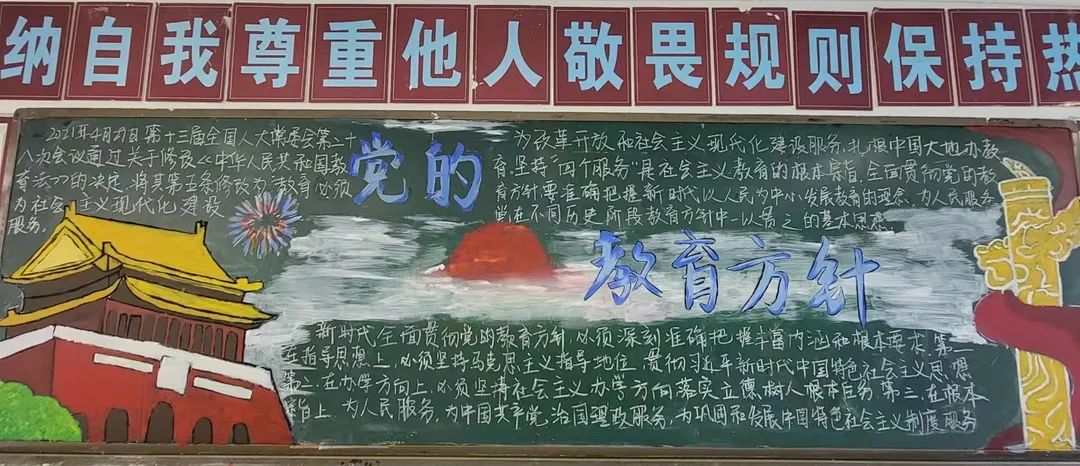 纳自我尊重他人敬畏规则保持热
2021年4月29日第十三届全国人大常委会第二十
八次会议通过关于修改《中华人民共和国教
育法》的决定,将其第五条修改为"教育必须
为社会主义现代化建设
服务,
党的
为改革开放和社会主义现代化建设服务,扎根中国大地办教
育.坚持"四个服务"是社会主义教育的根本宗旨.全面贯彻党的教
育方针要准确把握新时代以人民为中心发展教育的理念.为人民服务
党在不同历史阶段教育方针中一以贯之的基本思想.
教育方针
新时代全面贯彻党的教育方针,必须深刻准确把握丰富内涵和根本要求.第一
在指导思想上,必须坚持马克思主义指导地位,贯彻习近平新时代中国特色社会主义思想
第二.在办学方向上,必须坚持社会主义办学方向落实立德树人根本任务.第三,在根本
宗旨上.为人民服务,为中国共产党治国理政服务,为巩固和发展中国特色社会主义制度服务